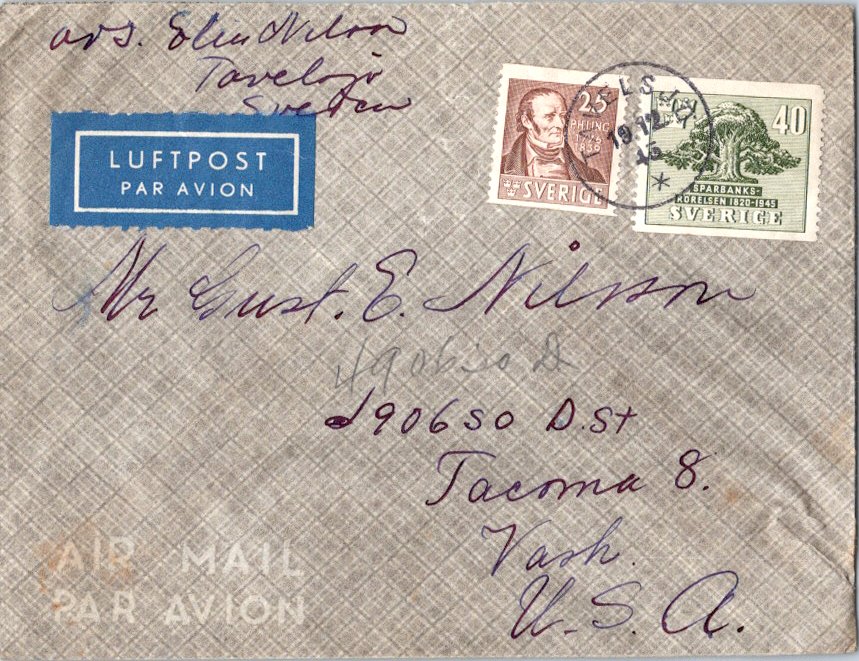 avs. Elin Nilson
Tavelsjö
Sweden
LUFTPOST
PAR AVION
25
PH LING
1776
1839
SVERIGE
TAVELSJÖ
19.12
45
40
SPARBANKS-
RÖRELSEN 1820-1945
SVERIGE
Mr Gust. E. Nilsson
4906 so. D
4906 SO D.St
Tacoma 8.
Vash.
U.S.A.
AIR MAIL
PAR AVION